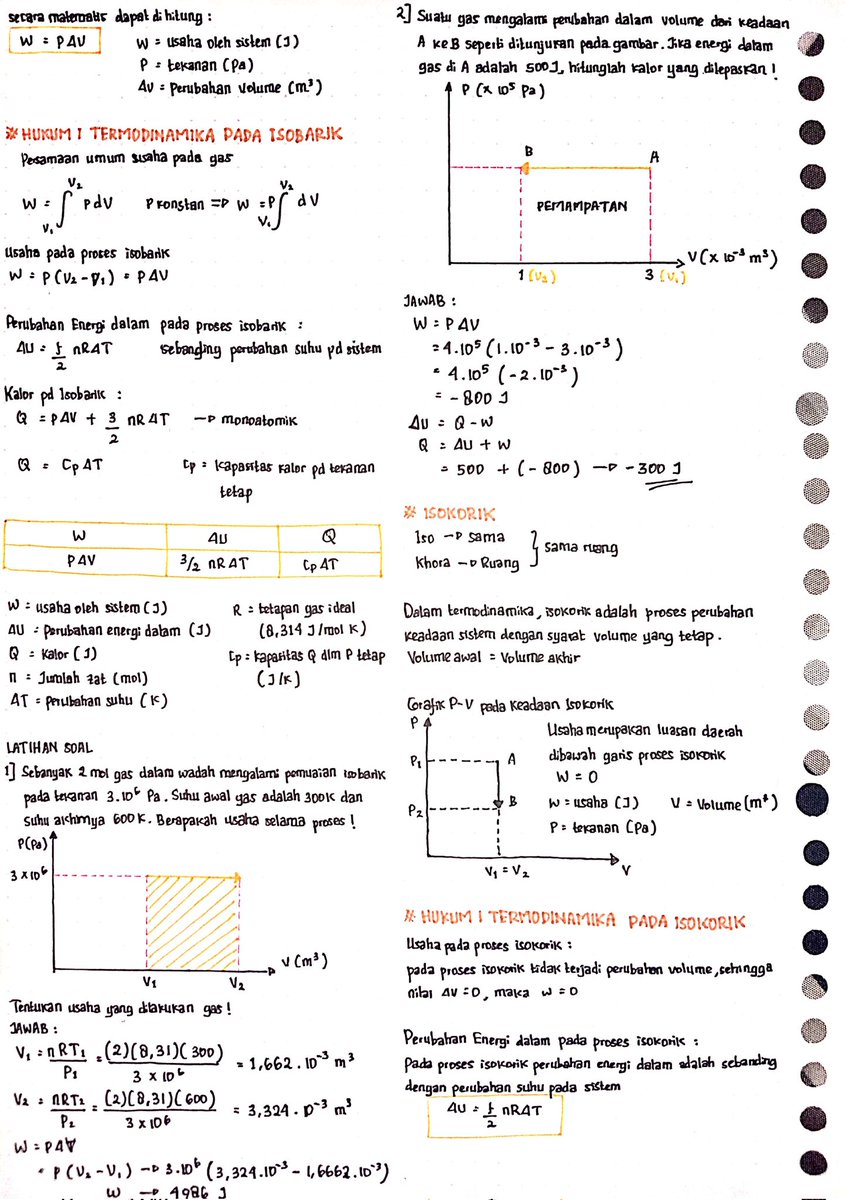 secara matematis dapat dihitung :
W = PΔV
W = usaha oleh sistem (J)
P = tekanan (Pa)
ΔV = Perubahan Volume (m³)
※ HUKUM I TERMODINAMIKA PADA ISOBARIK
Pesamaan umum susaha pada gas
W = ∫ V₁ V₂ P dV P konstan => W = P ∫ V₁ V₂ dV
Usaha pada proses isobarik
W = P (V₂ - V₁) = PΔV
Perubahan Energi dalam pada proses isobarik :
ΔU = f/2 nRΔT sebanding perubahan suhu pd sistem
Kalor pd Isobarik :
Q = PΔV + 3/2 nRΔT → monoatomik
Q = Cp ΔT Cp = Kapasitas kalor pd tekanan
tetap
W ΔU Q
PΔV 3/2 nRΔT CpΔT
W = usaha oleh sistem (J)
ΔU = Perubahan energi dalam (J)
Q = Kalor (J)
n = Jumlah zat (mol)
ΔT = Perubahan suhu (K)
R = tetapan gas ideal
(8,314 J/mol K)
Cp = Kapasitas Q dlm P tetap
(J/K)
LATIHAN SOAL
1] Sebanyak 2 mol gas dalam wadah mengalami pemuaian isobarik
pada tekanan 3.10⁶ Pa. Suhu awal gas adalah 300K dan
suhu akhirnya 600 K. Berapakah usaha selama proses !
P(Pa)
3 x 10⁶
V (m³)
V₁ V₂
Tentukan usaha yang dilakukan gas !
JAWAB :
V₁ = nRT₁/P₁ = (2)(8,31)(300)/3 x 10⁶ = 1,662 . 10⁻³ m³
V₂ = nRT₂/P₂ = (2)(8,31)(600)/3 x 10⁶ = 3,324 . 10⁻³ m³
W = PΔV
= P (V₂ - V₁) → 3.10⁶ (3,324.10⁻³ - 1,6662.10⁻³)
W → 4986 J
2] Suatu gas mengalami perubahan dalam volume dari keadaan
A ke B seperti ditunjuran pada gambar. Jika energi dalam
gas di A adalah 500 J, hitunglah kalor yang dilepaskan !
P (x 10⁵ Pa)
B A
PEMAMPATAN
V (x 10⁻³ m³)
1 (V₂) 3 (V₁)
JAWAB :
W = P ΔV
= 4.10⁵ (1.10⁻³ - 3.10⁻³)
= 4.10⁵ (-2.10⁻³)
= - 800 J
ΔU = Q - W
Q = ΔU + W
= 500 + (- 800) → - 300 J
※ ISOKORIK
Iso → Sama
Khora → Ruang
} sama ruang
Dalam termodinamika, isokorik adalah proses perubahan
keadaan sistem dengan syarat volume yang tetap.
Volume awal = Volume akhir
Grafik P-V pada Keadaan Isokorik
P
P₁ A
P₂ B
V₁ = V₂ V
Usaha merupakan luasan daerah
dibawah garis proses isokorik
W = 0
W = usaha (J) V = Volume (m³)
P = tekanan (Pa)
※ HUKUM I TERMODINAMIKA PADA ISOKORIK
Usaha pada proses isokorik :
pada proses isokorik tidak terjadi perubahan volume, sehingga
nilai ΔV = 0, maka W = 0
Perubahan Energi dalam pada proses isokorik :
Pada proses isokorik perubahan energi dalam adalah sebanding
dengan perubahan suhu pada sistem
ΔU = f/2 nRΔT